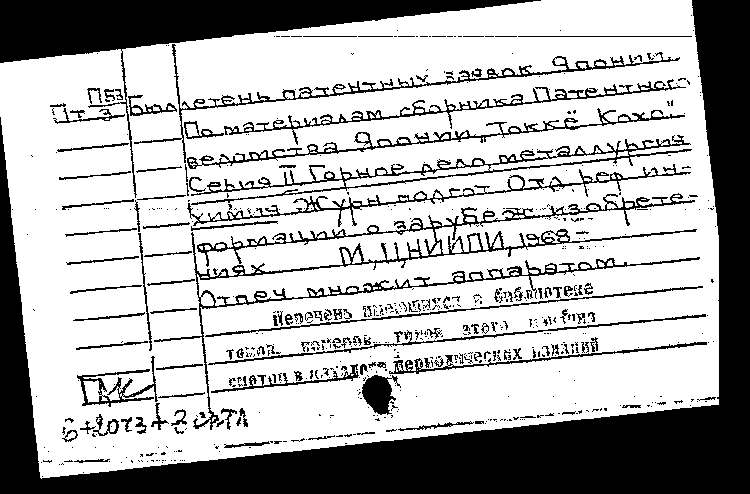 П53
Пт 3 Бюллетень патентных заявок Японии.
По материалам сборника Патентного
ведомства Японии „Токкё Кохо".
Серия II. Горное дело, металлургия
химия. Журн подгот Отд. реф ин-
формации о зарубеж изобрете-
ниях М., ЦНИИПИ, 1968-
Отпеч множит аппаратом.
Перечень имеющихся в библиотеке
томов, номеров, годов этого
смотри в каталоге периодических изданий